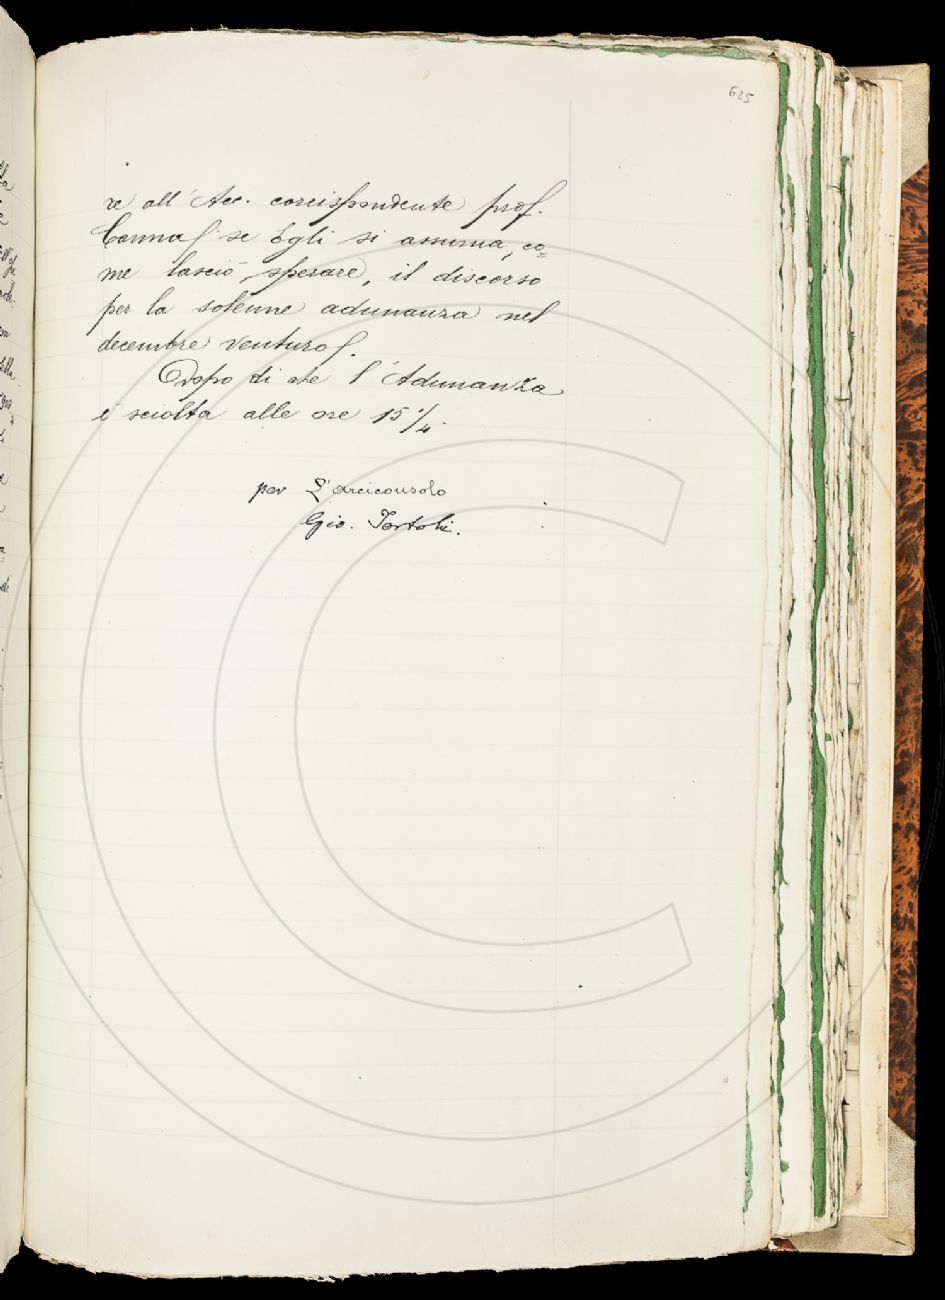 625
re all'Acc. corrispondente prof.
Canna se Egli si assuma, co=
me lasciò sperare, il discorso
per la solenne adunanza nel
decembre venturo.
Dopo di che l'Adunanza
è sciolta alle ore 15 1/4.
per L'arciconsolo
Gio. Tortoli.